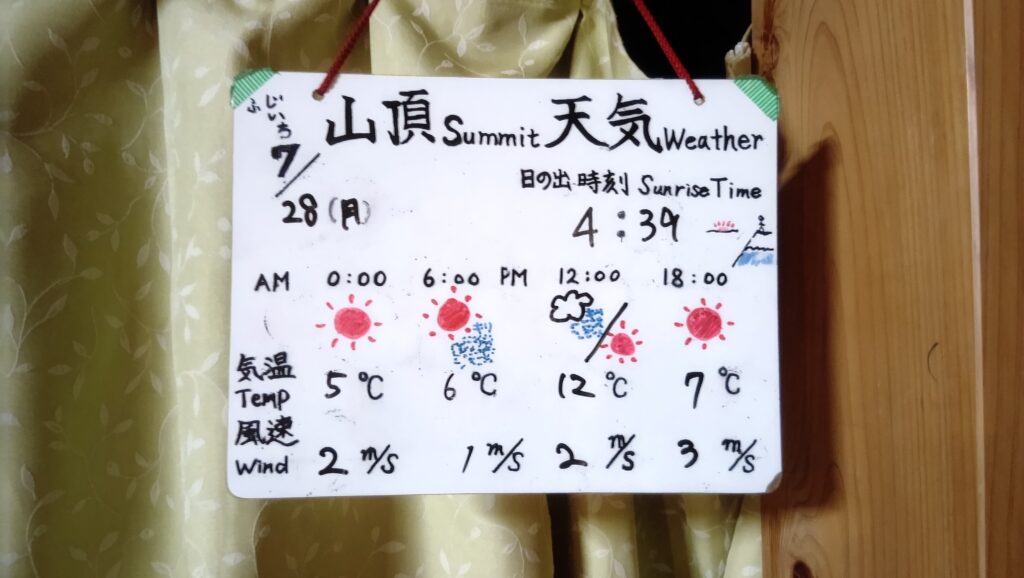 ふじいち
山頂 Summit 天気 Weather
7/28(月)
日の出時刻 Sunrise Time
4:39
AM 0:00 6:00 PM 12:00 18:00
気温
Temp 5℃ 6℃ 12℃ 7℃
風速
Wind 2 m/s 1 m/s 2 m/s 3 m/s